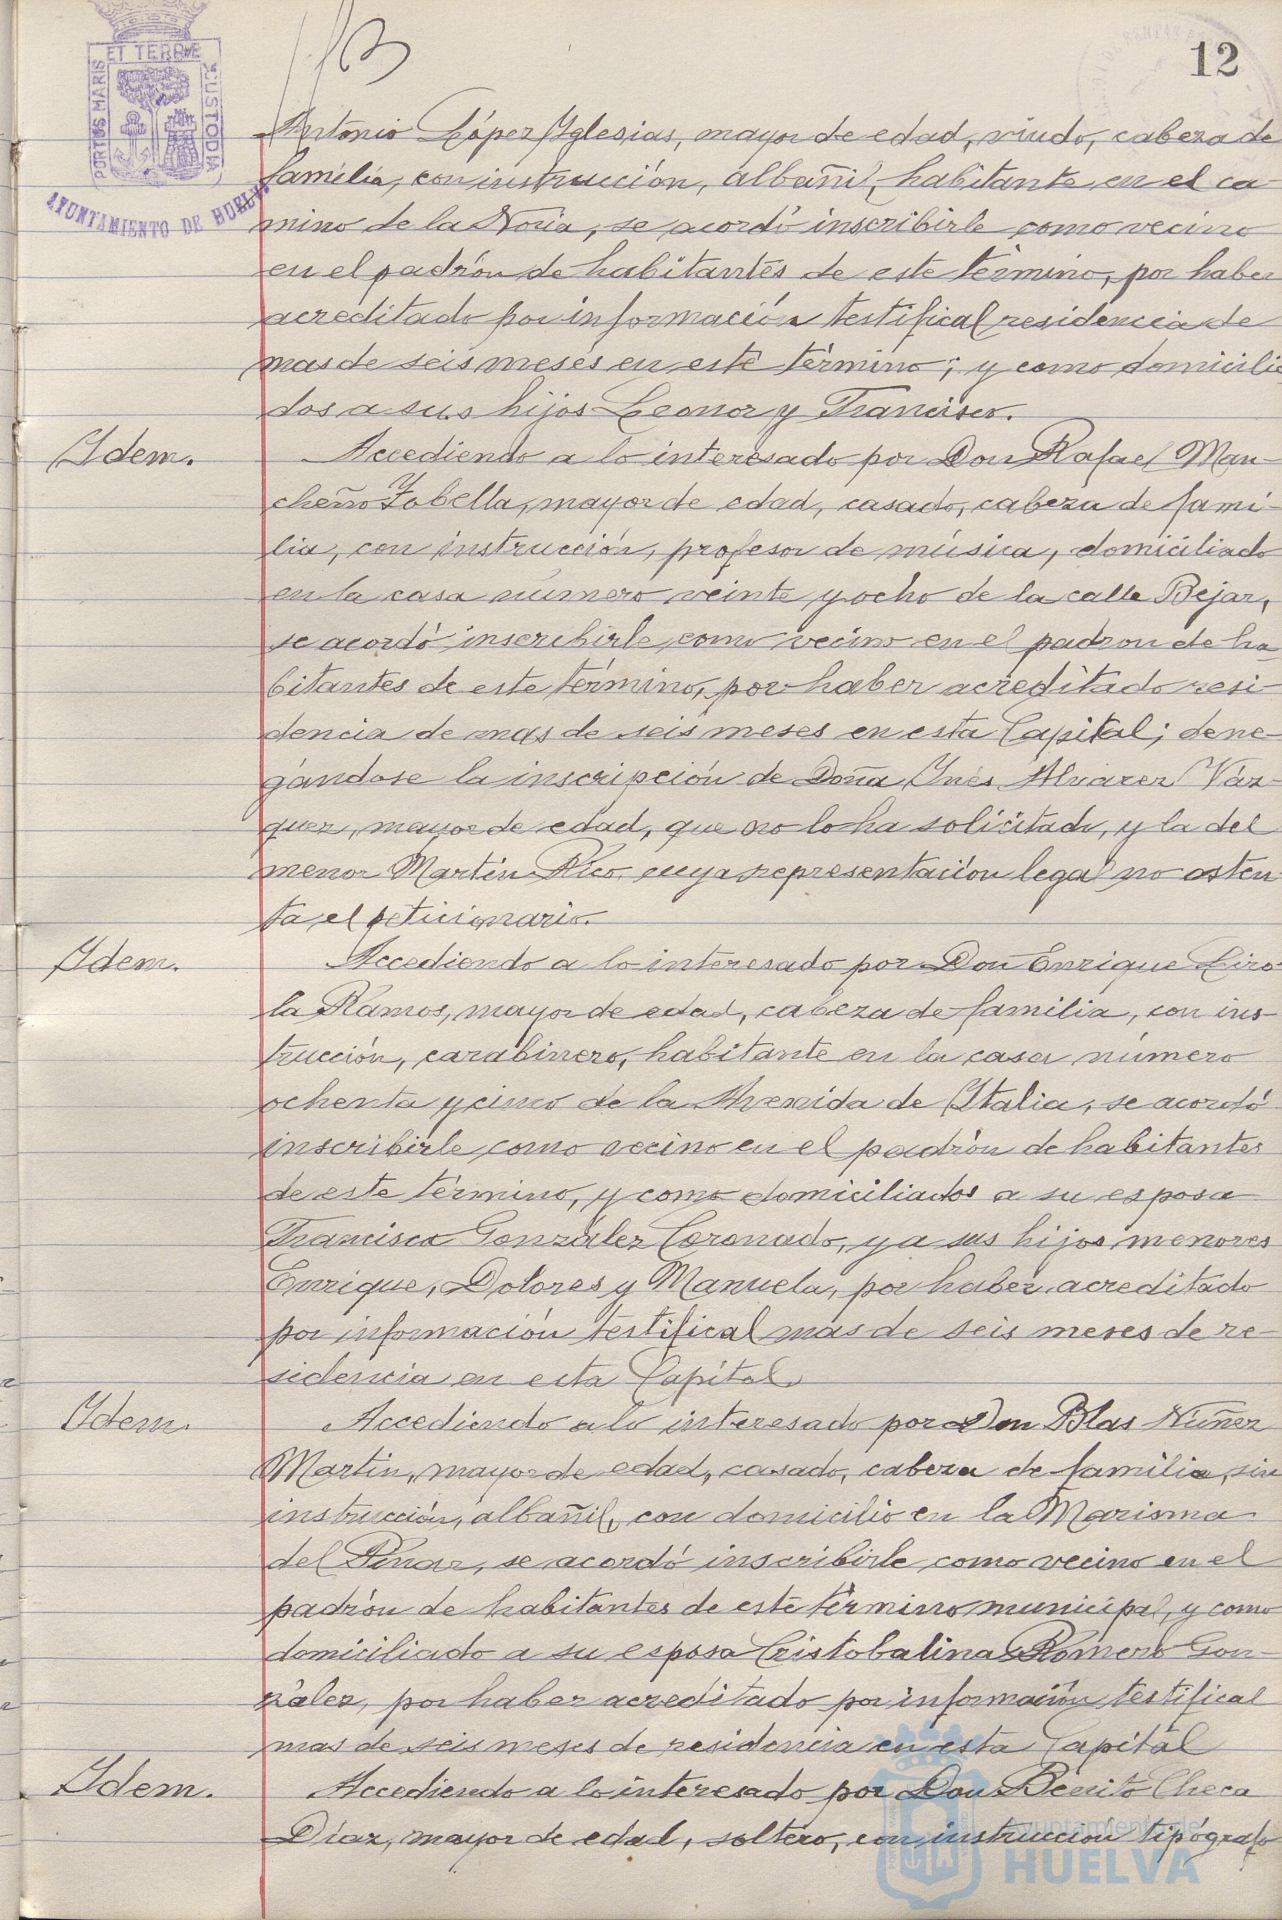 12
PORTUS MARIS ET TERRAE CUSTODIA
AYUNTAMIENTO DE HUELVA
Antonio López Yglesias, mayor de edad, viudo, cabeza de
familia, con instrucción, albañil, habitante en el ca-
mino de la Noria, se acordó inscribirle como vecino
en el padrón de habitantes de este término, por haber
acreditado por información testifical residencia de
mas de seis meses en este término; y como domicilia
dos a sus hijos Leonor y Francisco.
Ydem.
Accediendo a lo interesado por Don Rafael Man-
cheño Yobella, mayor de edad, casado, cabeza de fami-
lia, con instrucción, profesor de música, domiciliado
en la casa número veinte y ocho de la calle Bejar,
se acordó inscribirle como vecino en el padron de ha-
bitantes de este término, por haber acreditado resi-
dencia de mas de seis meses en esta Capital; dene-
gándose la inscripción de Doña Ynés Alvarez Váz-
quez, mayor de edad, que no lo ha solicitado, y la del
menor Martín Rico, cuya representación legal no osten
ta el peticionario.
Ydem.
Accediendo a lo interesado por Don Enrique Liro-
la Ramos, mayor de edad, cabeza de familia, con ins-
trucción, carabinero, habitante en la casa número
ochenta y cinco de la Avenida de Ytalia, se acordó
inscribirle como vecino en el padrón de habitantes
de este término, y como domiciliados a su esposa
Francisca González Coronado, y a sus hijos menores
Enrique, Dolores y Manuela, por haber acreditado
por información testifical mas de seis meses de re-
sidencia en esta Capital.
Ydem.
Accediendo a lo interesado por Don Blas Núñez
Martin, mayor de edad, casado, cabeza de familia, sin
instrucción, albañil, con domicilio en la Marisma
del Pinar, se acordó inscribirle como vecino en el
padrón de habitantes de este término municipal, y como
domiciliado a su esposa Cristobalina Romero Gon-
zález, por haber acreditado por información testifical
mas de seis meses de residencia en esta Capital
Ydem.
Accediendo a lo interesado por Don Benito Checa
Díaz, mayor de edad, soltero, con instruccion tipógrafo
Ayuntamiento de
HUELVA